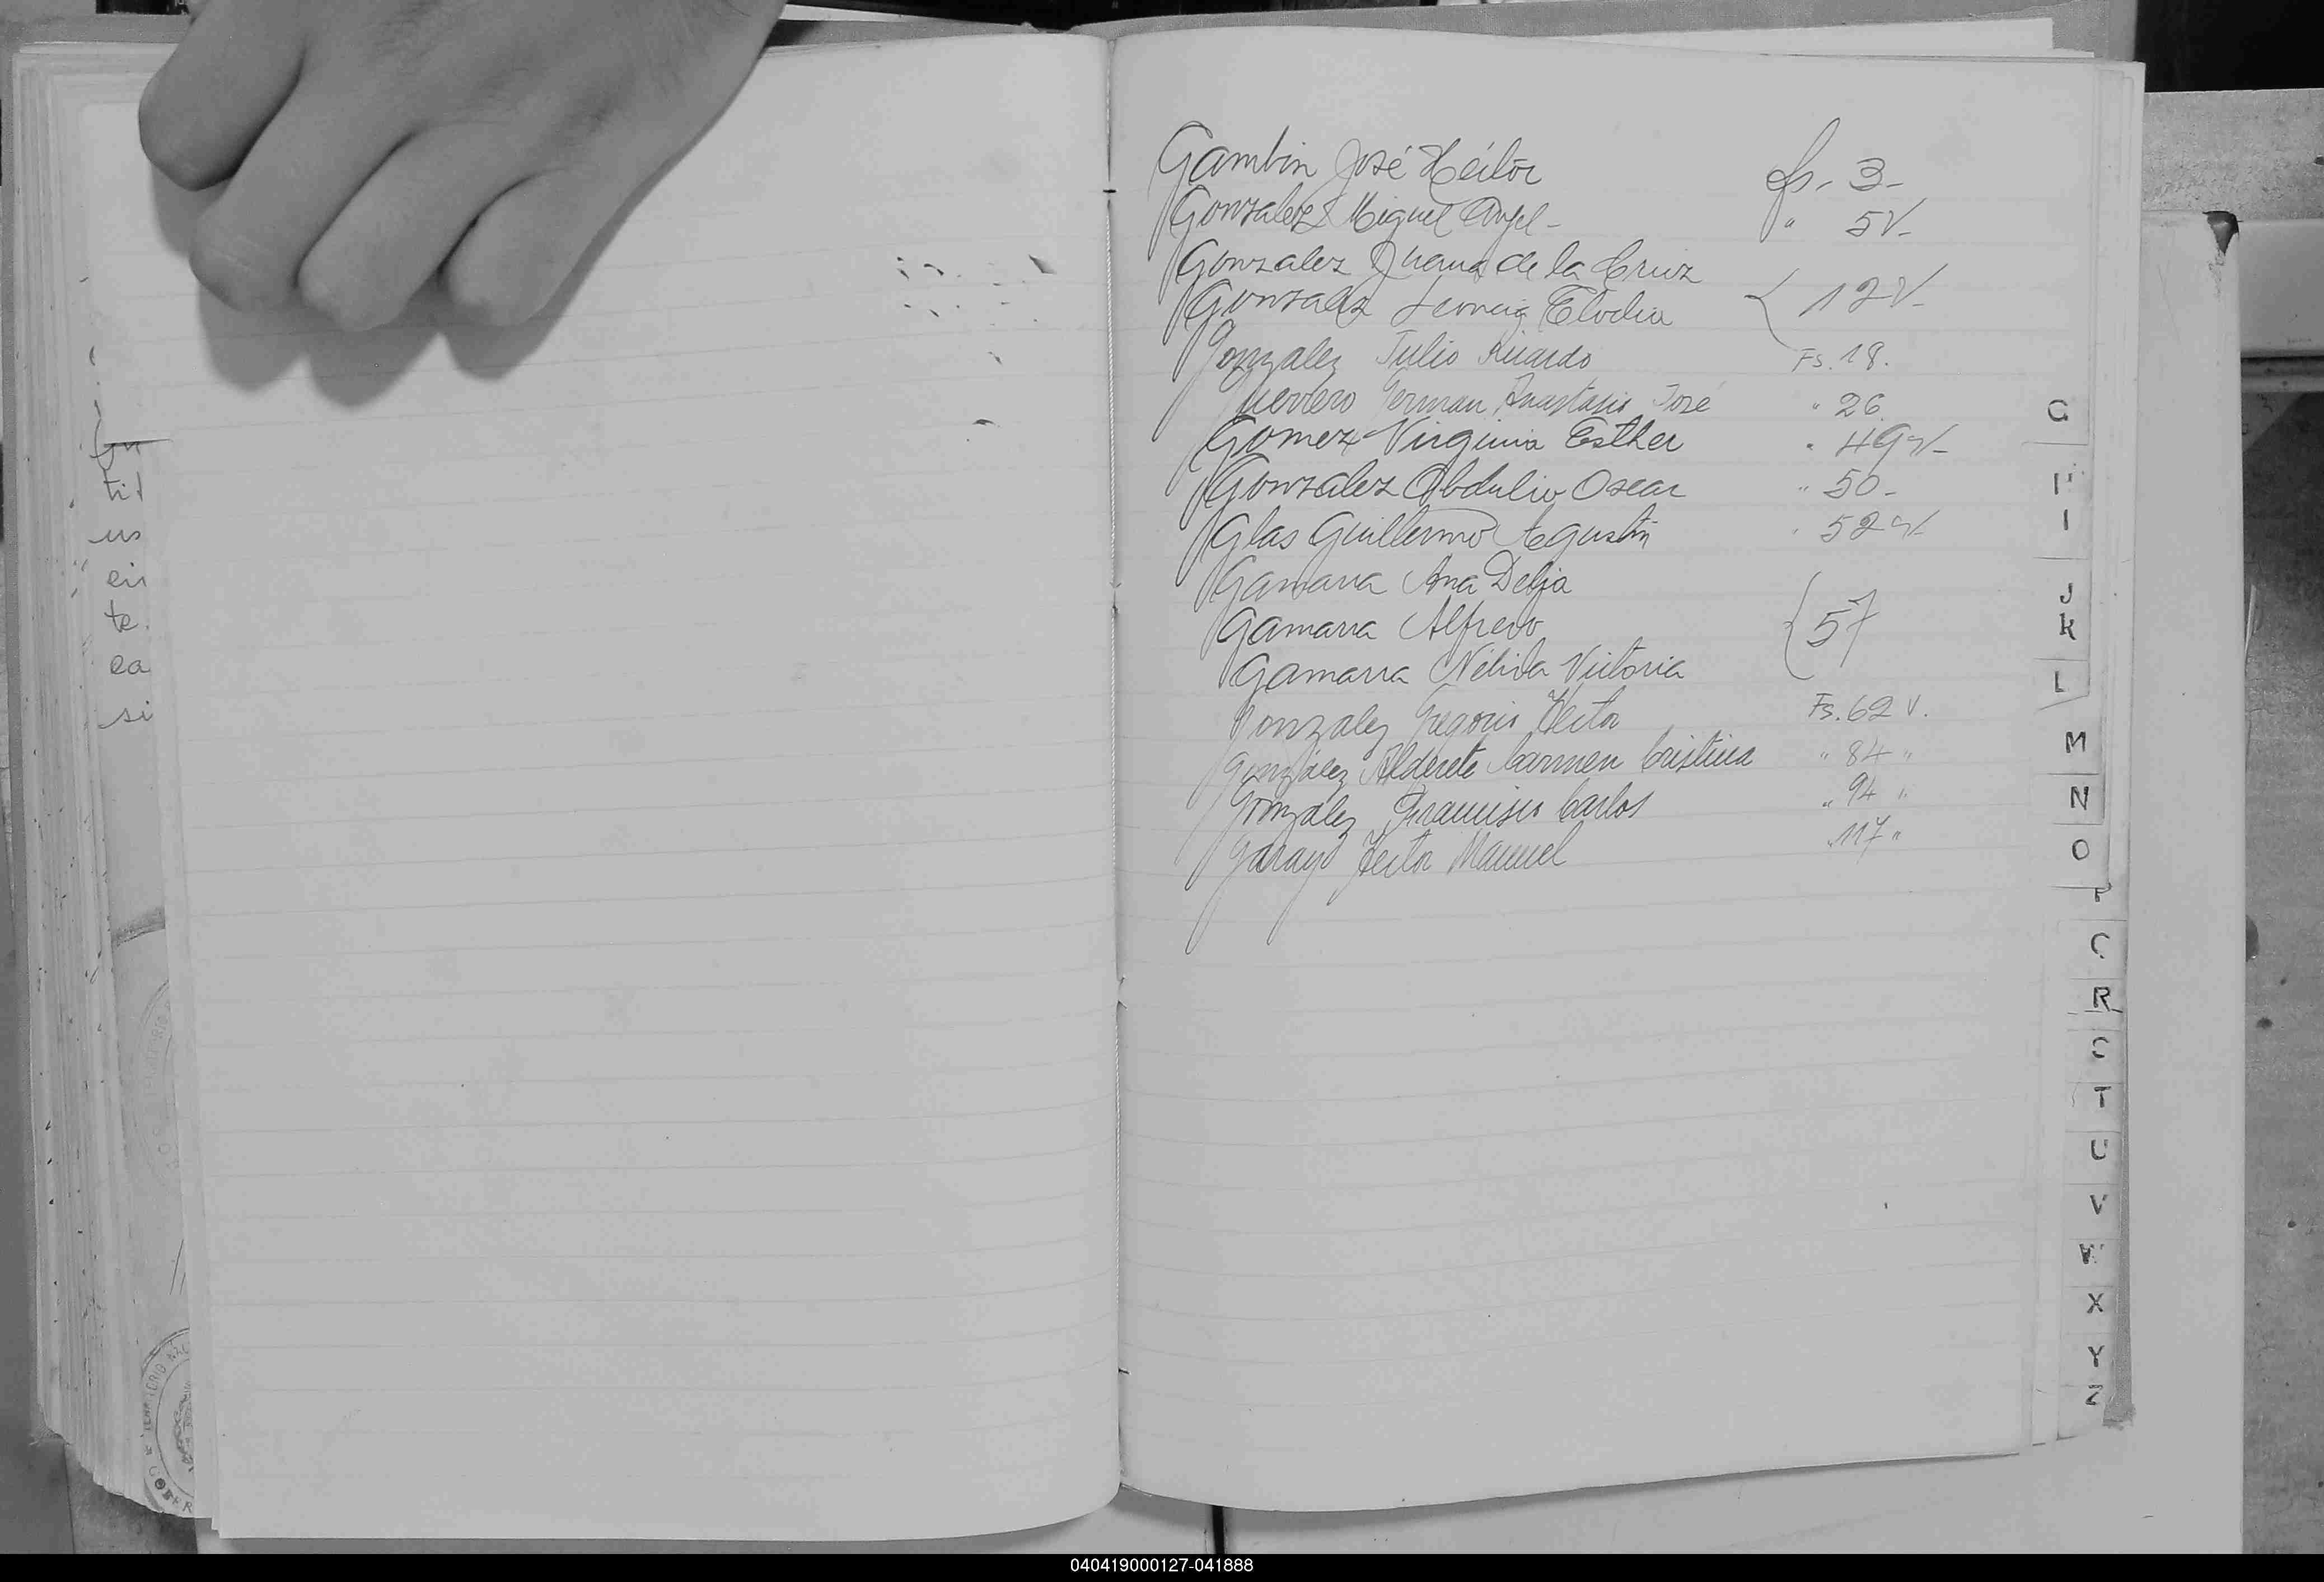 Gambin José Héctor fs. 3-
Gonzalez Miguel Angel - " 5V-
Gonzalez Juana de la Cruz
Gonzalez Elodia 12V-
Gonzalez Julio Ricardo Fs. 18.
Guerrero German Anastasio José " 26.
Gomez Virginia Esther " 49v-
Gonzalez Obdulio Oscar " 50-
Glas Guillermo Agustin " 52v
Gamarra Ana Delia
Gamarra Alfredo 57
Gamarra Nélida Victoria
Gonzalez Gregorio Hector Fs. 62 V.
Gonzalez Alderete Carmen Cristina " 84 "
Gonzalez Francisco Carlos " 94 "
Garay Hector Manuel " 117 "
G
I
J
K
L
M
N
O
P
R
T
U
V
W
X
Y
Z
tit
us
te
ea
si
040419000127-041888